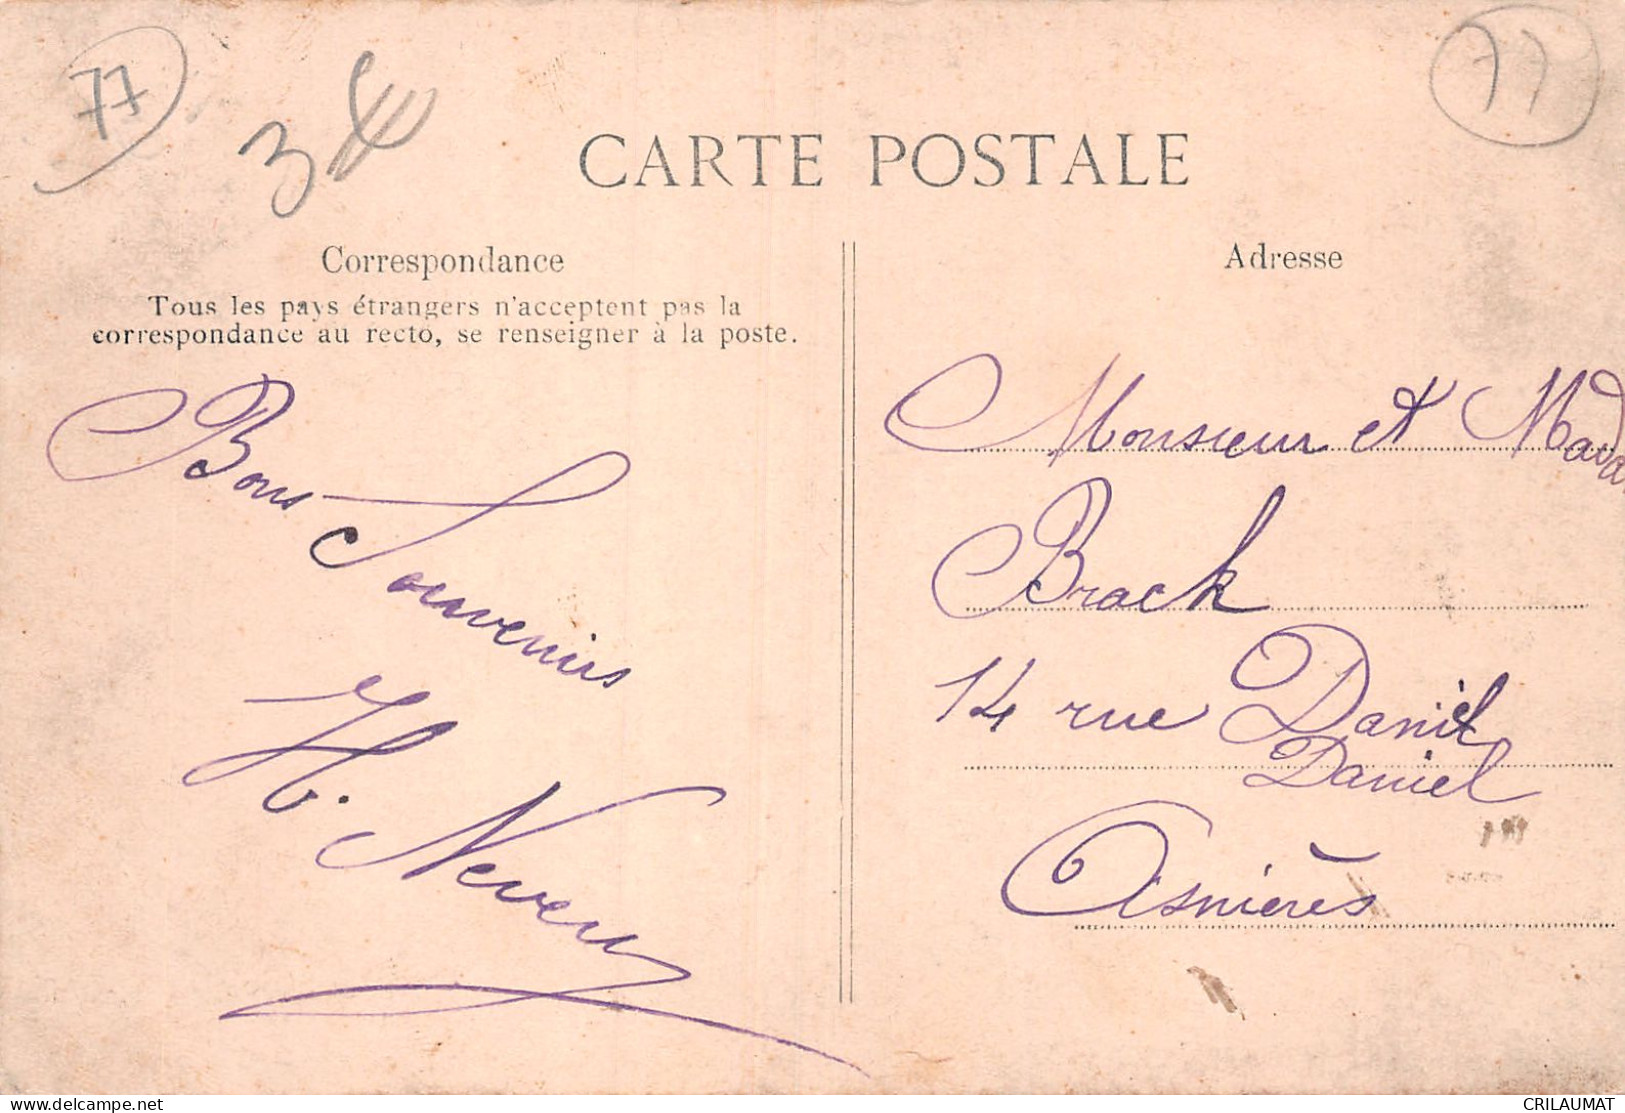 77
3€
77
CARTE POSTALE
Correspondance
Tous les pays étrangers n'acceptent pas la
correspondance au recto, se renseigner à la poste.
Bons
Souvenirs
H. Neveu
Adresse
Monsieur et Mada
Brack
14 rue Daniel
Daniel
Asnières
www.delcampe.net
CRILAUMAT